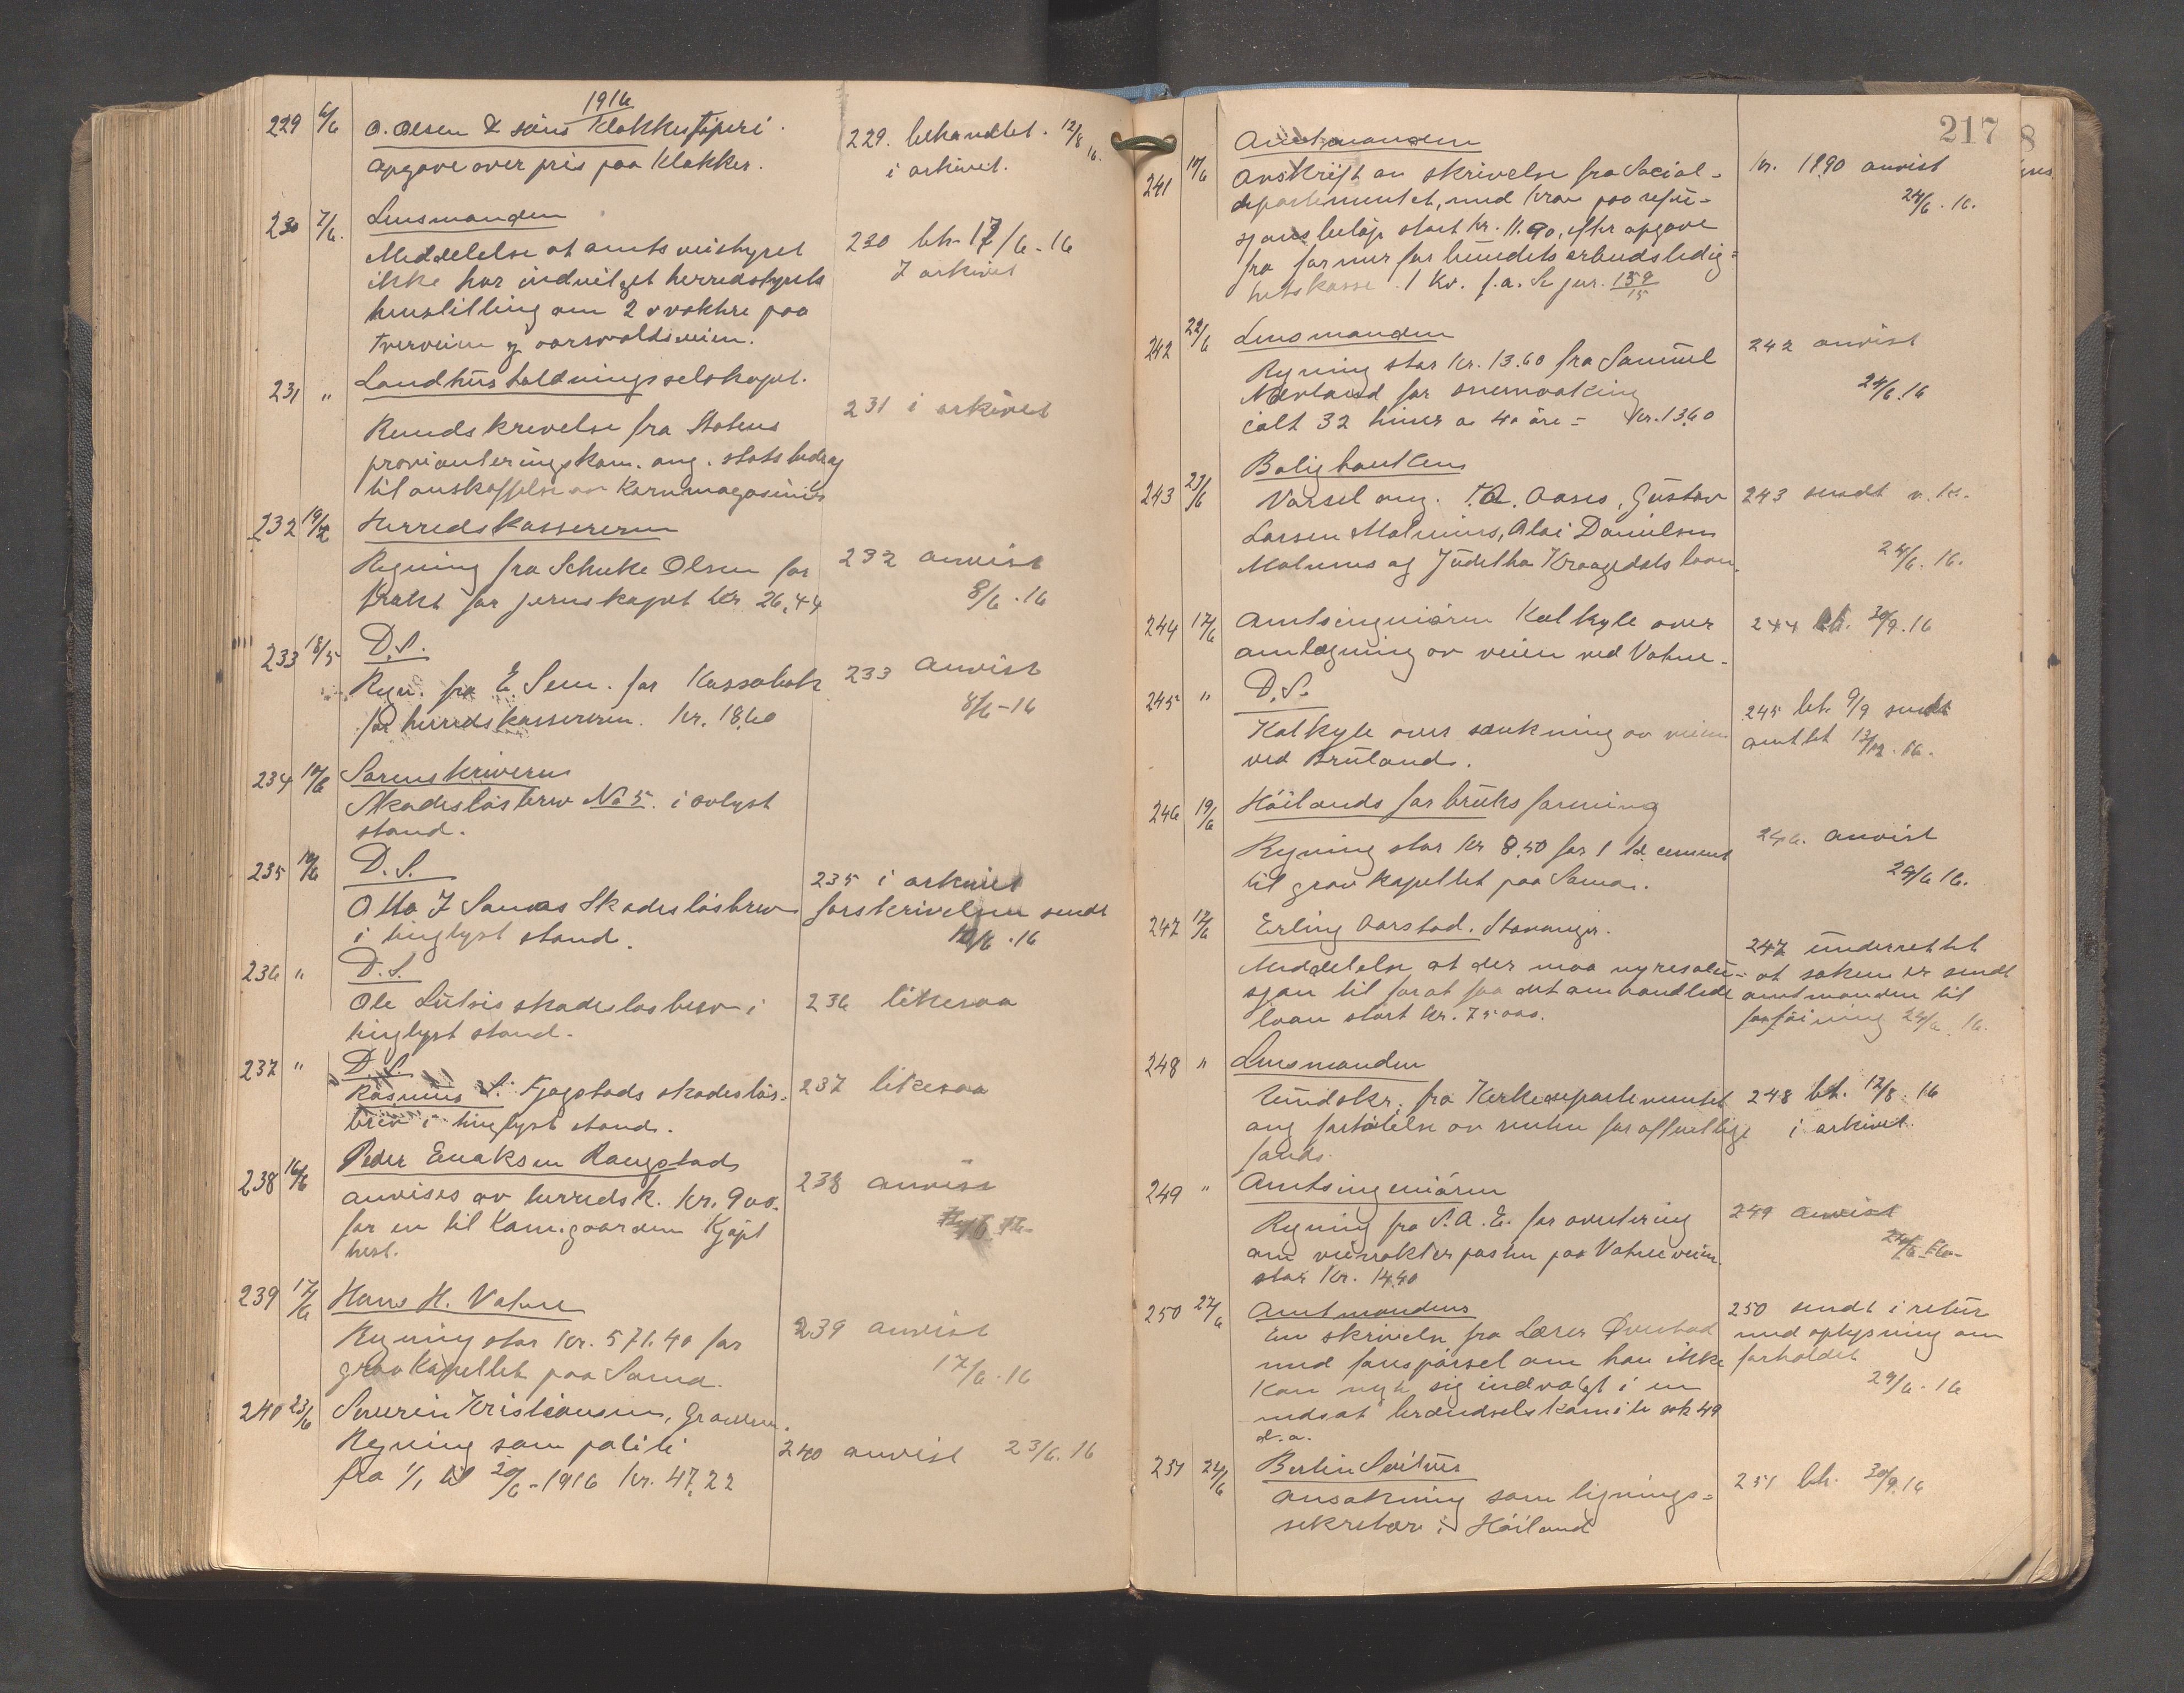 1916
229 6/6 O. Olsen & söns Klokkestöperi.
Opgave over pris paa Klokker.
229. behandlet. 12/8 16.
i arkivet.
230 7/6. Lensmanden
Meddelelse at amtsveistyret
ikke har indvilget herredstyrets
henstilling om 2 voktere paa
Tverveien og aarsvoldsveien.
230 beh. 17/6-16
I arkivet
231 " Landhusholdningsselskapet.
Rundskrivelse fra Statens
provianteringskom. ang. statsbidrag
til anskaffelse av Kornmagasiner
231 i arkivet
232 Herredskassereren
Regning fra Schuke Olsen for
frakt for jernskapet kr 26,44
232 anvist
8/6.16
233 18/5 D.S.
Regn. fra E. Sem. for Kassabok
for herredskassereren. kr. 18,60
233 anvist
8/6-16
234 10/6 Sorenskriveren
Skadeslösbrev No 5. i avlyst
stand.
235 10/6 D.S.
Otto J Sandas Skadeslösbrev
i tinglyst stand.
235 i arkivet
forskrivelsen sendt
10/6.16
236 " D.S.
Ole Lutsis skadeslösbrev i
tinglyst stand.
236 likesaa
237 " D.S.
Rasmus S. Fjogstads skadeslös-
brev i tinglyst stand.
237 likesaa
238 16/6 Peder Enoksen Haugstad
anvises av herredsk. kr. 900.
for en til Kom.gaarden Kjöpt
hest.
238 anvist
239 17/6 Hans H. Vatne
Regning stor Kr. 571.40 for
gravkapellet paa Soma.
239 anvist
17/6.16
240 23/6 Severin Kristiansen, Graveren.
Regning som politi
fra 1/1 til 20/6-1916 kr. 47,22
240 anvist 23/6.16
217
241 10/6 Amtmanden
Avskrift av skrivelse fra Social-
departementet, med krav paa refu-
sjonsbelöp stort kr. 11.90, efter opgave
fra former forbundets arbeidsledig-
hetskasse 1 Kv. f.a. Se jur. 159/15
kr. 11.90 anvist
24/6.16.
242 22/6 Lensmanden
Regning stor kr. 13.60 fra Samuel
Nevland for snemaaking
ialt 32 timer a 40 öre = kr. 13,60
242 anvist
24/6.16
243 23/6 Boligbanken
Varsel ang. T.A. Aases, Gustav
Larsen Malmins, Olai Danielsen
Malmins og Juditha Kraagedals laan.
243 sendt v. k.
24/6.16.
244 17/6 Amtsingeniören Kalkyle over
omlægning av veien ved Vatne.
244 beh. 30/9.16
245 " D.S.
Kalkyle over senkning av veien
ved Bruland.
245 beh. 9/9 sendt
amtet 13/12.16.
246 19/6 Höilands forbruksforening
Regning stor kr 8.50 for 1 td. cement
til gravkapellet paa Soma.
246. anvist
24/6 16.
247 12/6 Erling Aarstad. Stavanger.
Meddelelse at der maa ny resolu-
sjon til for at faa det omhandlede
laan stort kr. 75000.
247 underrettet
at saken er sendt
amtmanden til
forföining 24/6 16.
248 " Lensmanden
Rundskr. fra Kirkedepartementet
ang fastsættelse av renten for offentlige
fonds.
248 beh. 12/8.16
i arkivet.
249 " Amtsingeniören
Regning fra S.A.E. for avertering
om veivokterposten paa Vatneveien
stor kr. 14.40
249 anvist
250 27/6 Amtmanden
En skrivelse fra Lærer Övestad
med forespörsel om han ikke
kan negte sig indvalgt i en
nedsat brændselskomite sak 49
d.a.
250 sendt i retur
med oplysning om
forholdet
29/6.16
251 24/6 Bertin Sviluis
Ansökning som lignings-
sekretær i Höiland
251 beh. 30/9.16